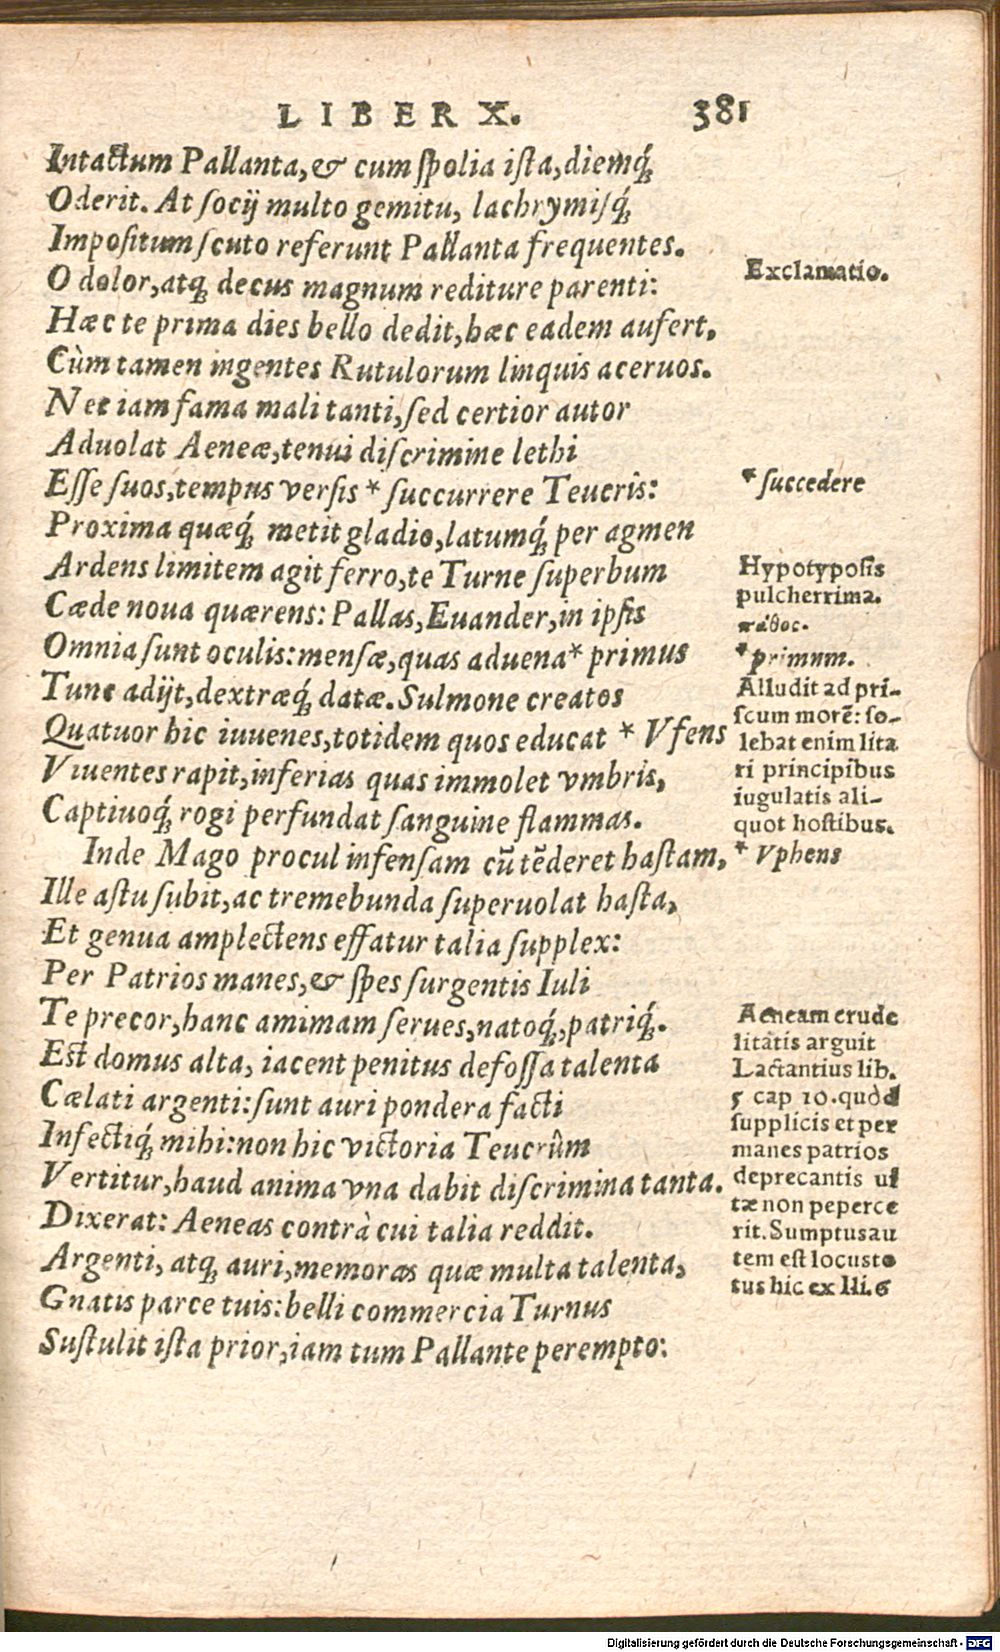 LIBER X. 381
Intactum Pallanta, & cum spolia ista, diemq́;
Oderit. At socij multo gemitu, lachrymisq́;
Impositum scuto referunt Pallanta frequentes.
O dolor, atq; decus magnum rediture parenti:
Exclamatio.
Hæc te prima dies bello dedit, hæc eadem aufert,
Cùm tamen ingentes Rutulorum linquis aceruos.
Nec iam fama mali tanti, sed certior autor
Aduolat Aeneæ, tenui discrimine lethi
Esse suos, tempus versis * succurrere Teucris:
* succedere
Proxima quæq́; metit gladio, latumq́; per agmen
Ardens limitem agit ferro, te Turne superbum
Cæde noua quærens: Pallas, Euander, in ipsis
Omnia sunt oculis: mensæ, quas aduena * primus
Tunc adijt, dextræq́; datæ. Sulmone creatos
Quatuor hic iuuenes, totidem quos educat * Vfens
Viuentes rapit, inferias quas immolet vmbris,
Captiuoq́; rogi perfundat sanguine flammas.
Hypotyposis
pulcherrima.
πάθος.
* primum.
Alludit ad pri-
scum morē: so-
lebat enim lita
ri principibus
iugulatis ali-
quot hostibus.
* Vphens
Inde Mago procul infensam cū tēderet hastam,
Ille astu subit, ac tremebunda superuolat hasta,
Et genua amplectens effatur talia supplex:
Per Patrios manes, & spes surgentis Iuli
Te precor, hanc amimam serues, natoq́;, patriq́;.
Est domus alta, iacent penitus defossa talenta
Cælati argenti: sunt auri pondera facti
Infectiq́; mihi: non hic victoria Teucrûm
Vertitur, haud anima vna dabit discrimina tanta.
Dixerat: Aeneas contrà cui talia reddit.
Argenti, atq; auri, memoras quæ multa talenta,
Gnatis parce tuis: belli commercia Turnus
Sustulit ista prior, iam tum Pallante perempto:
Aeneam crude
litatis arguit
Lactantius lib.
5 cap 10. quòd
supplicis et per
manes patrios
deprecantis ui
tæ non peperce
rit. Sumptus au
tem est locus to
tus hic ex Ili. 6
Digitalisierung gefördert durch die Deutsche Forschungsgemeinschaft - DFG